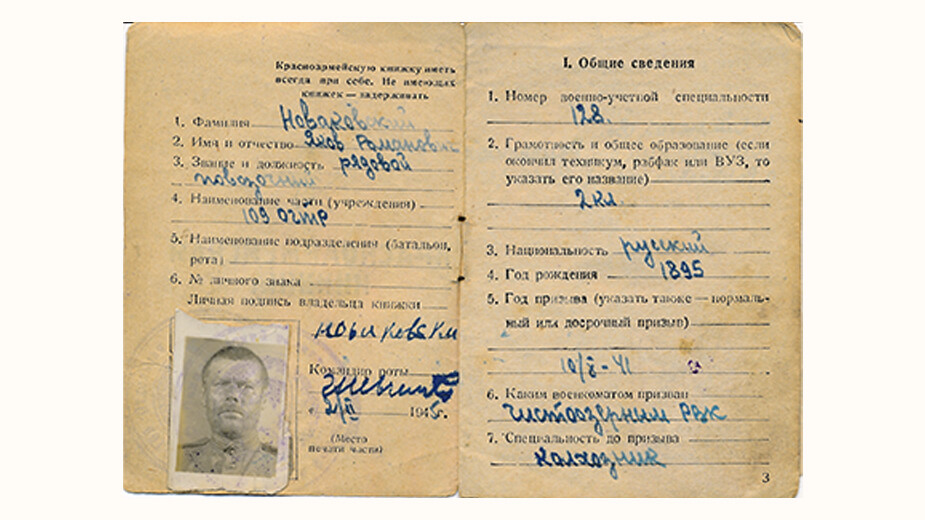 Красноармейскую книжку иметь
всегда при себе. Не имеющих
книжек — задерживать
1. Фамилия Новаковский
2. Имя и отчество Яков Романович
3. Звание и должность рядовой
повозочный
4. Наименование части (учреждения)
109 ОГТР
5. Наименование подразделения (батальон,
рота)
6. № личного знака
Личная подпись владельца книжки
Командир роты
194 г.
(Место
печати части)
I. Общие сведения
1. Номер военно-учетной специальности
128.
2. Грамотность и общее образование (если
окончил техникум, рабфак или ВУЗ, то
указать его название)
2 кл.
3. Национальность русский
4. Год рождения 1895
5. Год призыва (указать также — нормаль-
ный или досрочный призыв)
10/X - 41
6. Каким военкоматом призван
Чистоозерным РВК
7. Специальность до призыва
колхозник
3